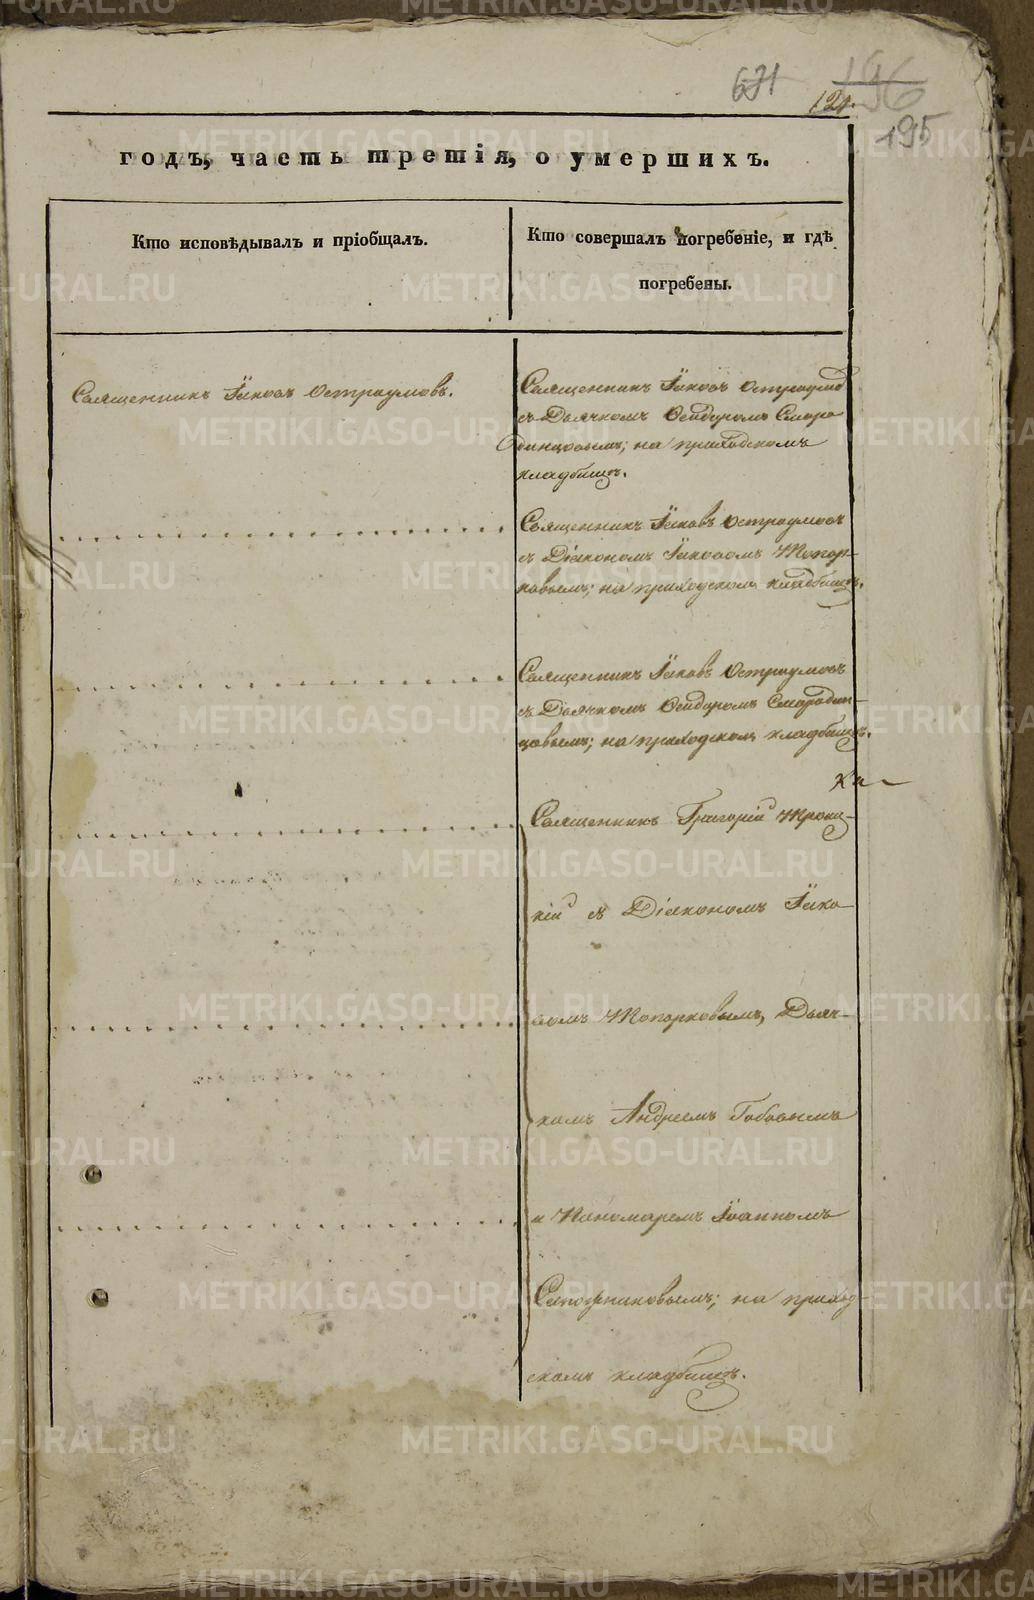 671
196
124.
195
годъ, часть третія, о умершихъ.
Кто исповѣдывалъ и пріобщалъ.
Кто совершалъ погребеніе, и гдѣ
погребены.
Священникъ Іаковъ Остроумовъ.
Священникъ Іаковъ Остроумов
съ Дьячкомъ Сидоромъ Сморо
динцовымъ; на приходскомъ
кладбищѣ.
Священникъ Іаковъ Остроумовъ
съ Діакономъ Іаковомъ Топор-
ковымъ; на приходскомъ кладбищѣ.
Священникъ Іаковъ Остроумовъ
съ Дьячкомъ Сидоромъ Смородин-
цовымъ; на приходскомъ кладбищѣ.
Священникъ Григорій Троиц-
кій съ Діакономъ Іако-
вомъ Топорковымъ, Дьяч-
комъ Андреемъ Бобовымъ
и Пономаремъ Іоанномъ
Сапожниковымъ; на приход-
скомъ кладбищѣ.
METRIKI.GASO-URAL.RU